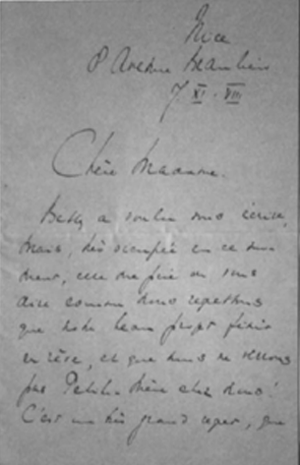 Nice
8 Avenue Beaulieu
7 XI. VIII
Chère Madame.
Betsy a voulu vous écrire,
mais, très occupée en ce mo
ment, elle me prie de vous
dire combien nous regrettons
que notre beau projet finit
en rêve, et que nous ne verrons
pas Petite Mère chez nous!
C'est un très grand regret, que